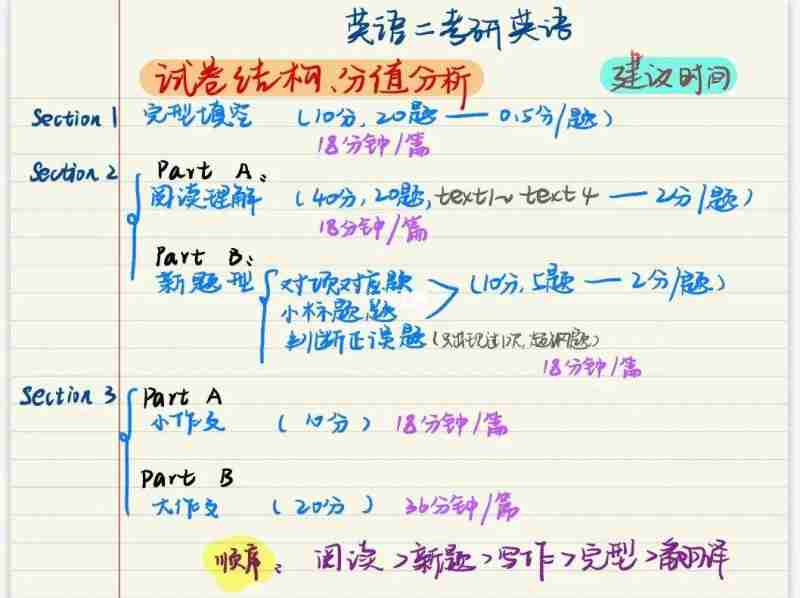 英语二考研英语
试卷结构、分值分析 建议时间
Section 1 完型填空 (10分,20题 — 0.5分/题)
18分钟/篇
Section 2 Part A:
阅读理解 (40分,20题,text1~text4 — 2分/题)
18分钟/篇
Part B:
新题型 对项对应题 (10分,5题 — 2分/题)
小标题题
判断正误题 (只出现过1次,超纲题)
18分钟/篇
Section 3 Part A
小作文 (10分) 18分钟/篇
Part B
大作文 (20分) 36分钟/篇
顺序: 阅读>新题>写作>完型>翻译